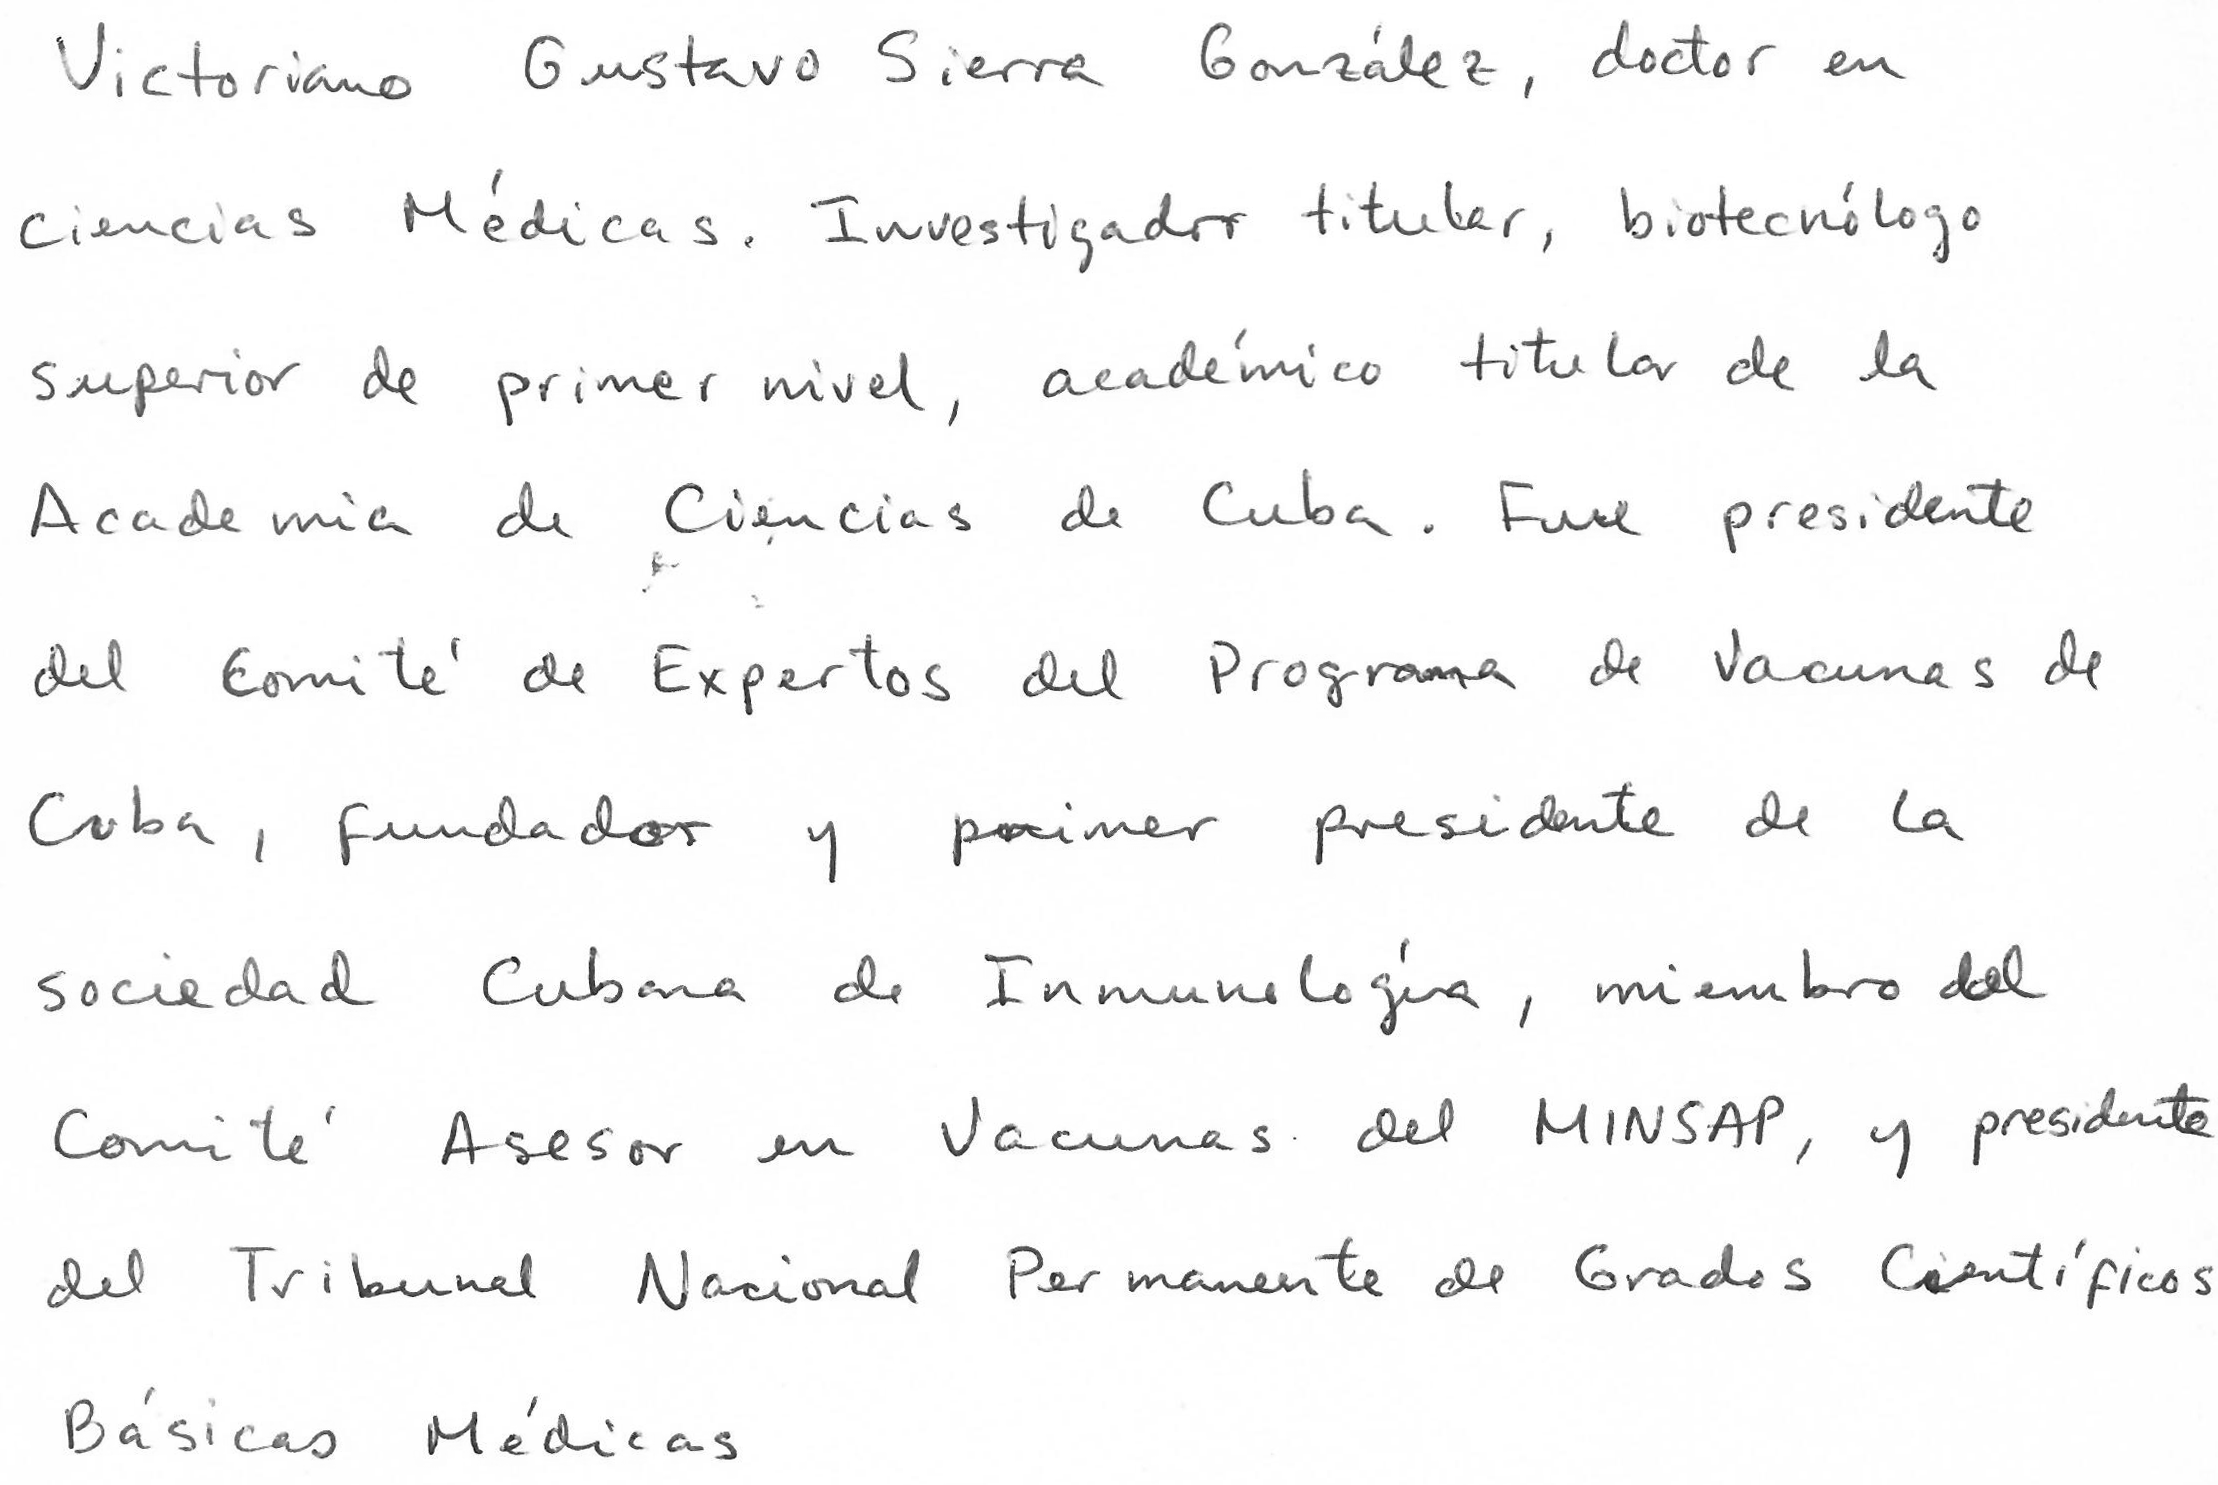 Victoriano Gustavo Sierra González, doctor en
ciencias Médicas. Investigador titular, biotecnólogo
superior de primer nivel, académico titular de la
Academia de Ciencias de Cuba. Fue presidente
del Comité de Expertos del Programa de Vacunas de
Cuba, fundador y primer presidente de la
sociedad Cubana de Inmunología, miembro del
Comité Asesor en Vacunas del MINSAP, y presidente
del Tribunal Nacional Permanente de Grados Científicos
Básicas Médicas